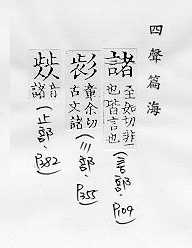 四聲篇海
諸 至如切非一也皆言也 (言部, P109)
章余切古文諸 (彡部, P355)
音諸 (止部, P382)